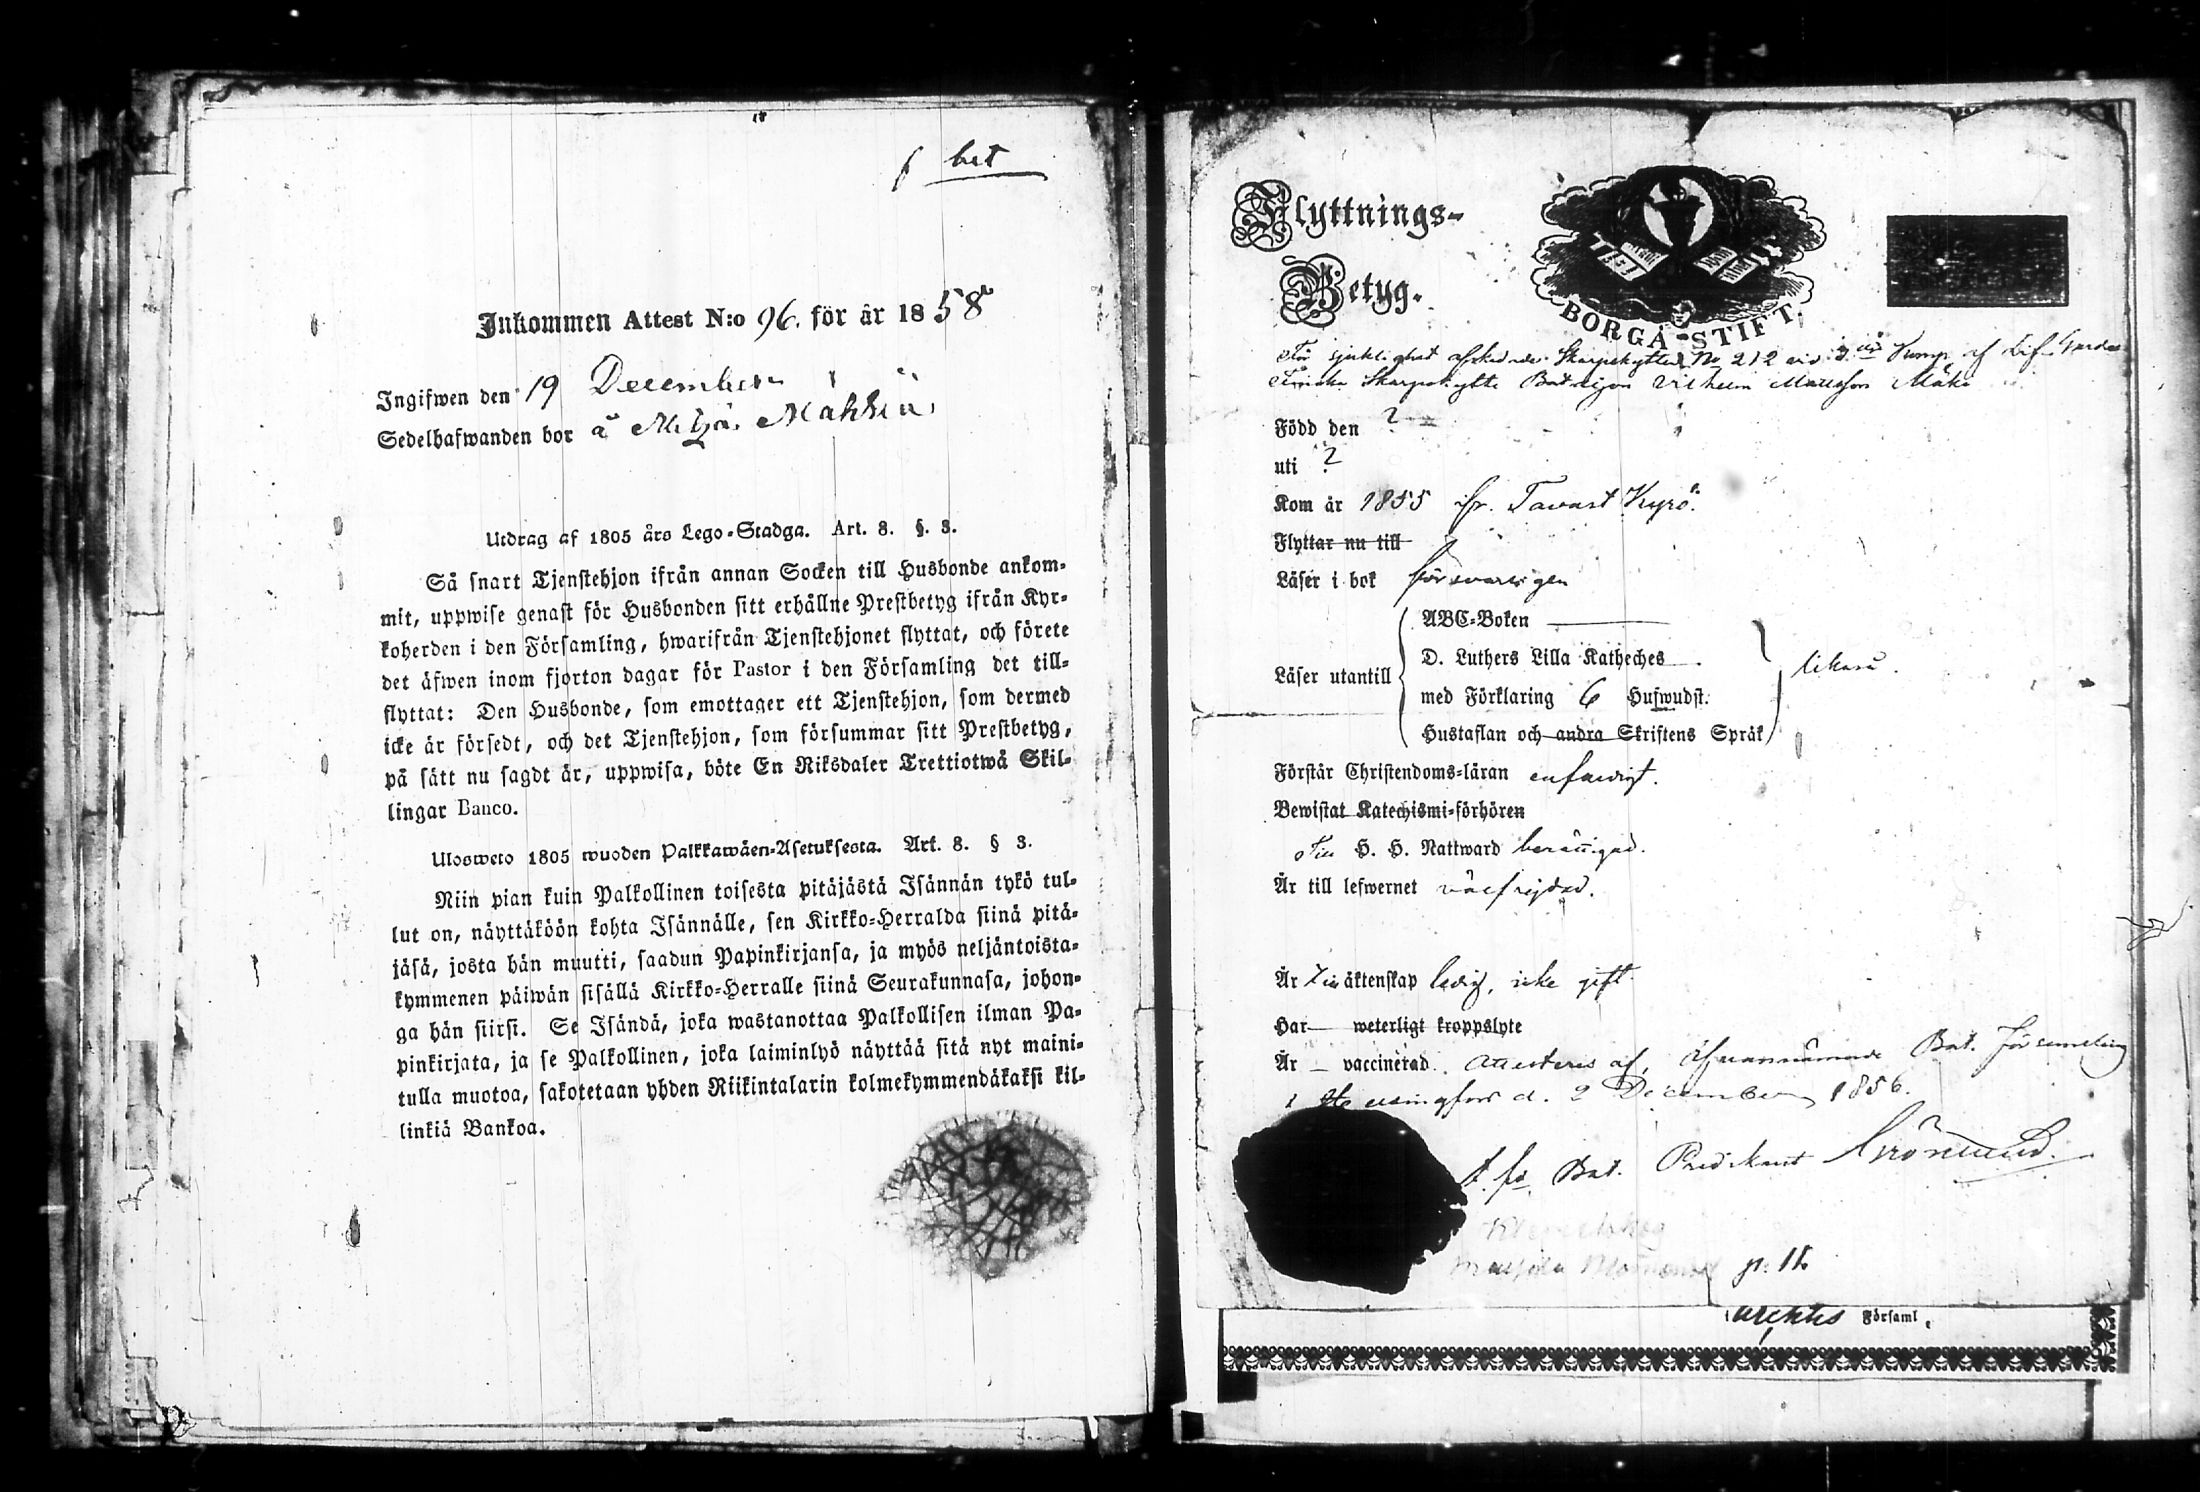 1 bet
Inkommen Attest N:o 96. för år 1858
Ingifwen den 19 December
Sedelhafwanden bor å Mahkiä
Utdrag af 1805 års Lego-Stadga. Art. 8. §. 3.
Så snart Tjenstehjon ifrån annan Socken till Husbonde ankom-
mit, uppwise genast för Husbonden sitt erhållne Prestbetyg ifrån Kyr-
koherden i den Församling, hwarifrån Tjenstehjonet flyttat, och förete
det äfwen inom fjorton dagar för Pastor i den Församling det till-
flyttat: Den Husbonde, som emottager ett Tjenstehjon, som dermed
icke är försedt, och det Tjenstehjon, som försummar sitt Prestbetyg,
på sätt nu sagdt är, uppwisa, böte En Riksdaler Trettiotwå Skil-
lingar Banco.
Ulosweto 1805 wuoden Palkkawäen-Asetuksesta. Art. 8. § 3.
Niin pian kuin Palkollinen toisesta pitäjästä Isännän tykö tul-
lut on, näyttäköön kohta Isännälle, sen Kirkko-Herralda siinä pitä-
jäsä, josta hän muutti, saadun Papinkirjansa, ja myös neljäntoista-
kymmenen päiwän sisällä Kirkko-Herralle siinä Seurakunnasa, johon-
ga hän siirsi. Se Isändä, joka wastanottaa Palkollisen ilman Pa-
pinkirjata, ja se Palkollinen, joka laiminlyö näyttää sitä nyt maini-
tulla muotoa, sakotetaan yhden Riikintalarin kolmekymmendäkaksi kil-
linkiä Bankoa.
Flyttnings-
Betyg.
BORGÅ-STIFT.
För sjuklighet afskedade Skarpskytten No 212 vid 3 Komp. af Lif-Gardes
Finska Skarpskytte Bataljon Vilhelm Mattsson Mäki
Född den ?
uti ?
Kom år 1855 ifr. Tavast Kyrö.
Flyttar nu till
Läser i bok försvarligen
ABC-Boken
D. Luthers Lilla Katheches
Läser utantill
med Förklaring 6 Hufwudst.
likaså.
Hustaflan och andra Skriftens Språk
Förstår Christendoms-läran enfaldigt.
Bewistat Katechismi-förhören
Till H. H. Nattward berättigad.
Är till lefwernet välfrejdad.
Är till äktenskap ledig, icke gift.
Har weterligt kroppslyte
Är vaccinerad. Attesteras af ofvannämnde Bat. Församling
i Helsingfors d. 2 December 1856.
t. f. Bat. Predikant Grönlund.
p. 11.
Församl.